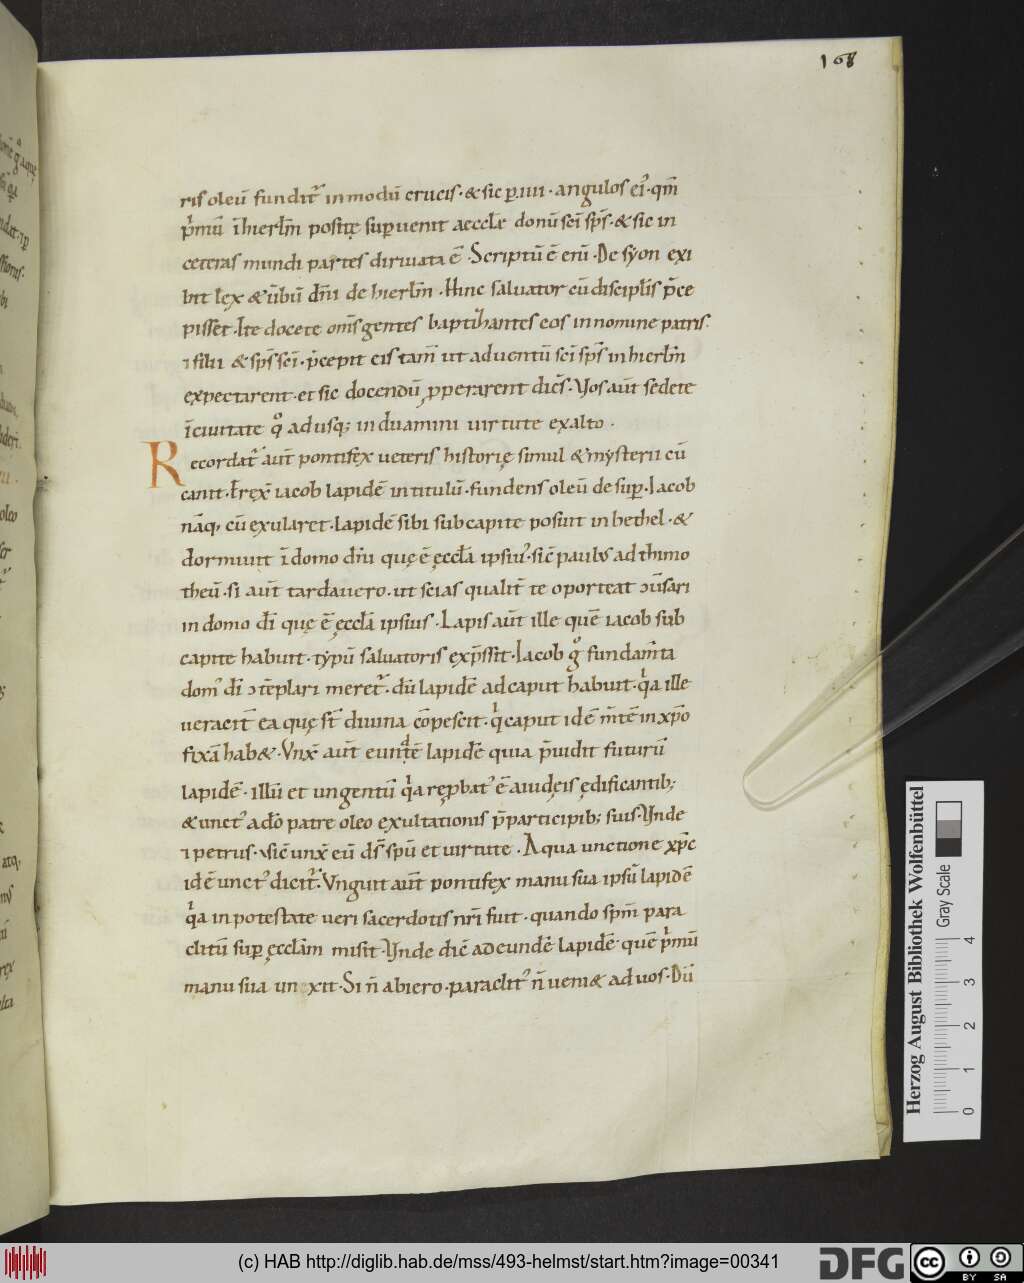 168
ris oleū fundit᷑ in modū crucis · & sic ꝑ · iiii · angulos ei᷒ · qm̄
p̍mū ī hierl̄m positę suꝑuenit aeccl̄ę donū sc̄i sp̄s · & sic in
ceteras mundi partes diriuata ē · Scriptū ē enī · De syon exi
bit lex & ūbū dn̄i de hierl̄m · Hinc saluator cū discipl̄is p̄ce
pisset · Ite docete om̄s gentes baptizantes eos in nomine patris ·
⁊ filii & sp̄s sc̄i · p̄cepit eis tam̄ ut aduentū sc̄i sp̄s in hierl̄m
expectarent · et sic docendū ꝓperarent dice̅s · Vos aūt sedete
ī ciuitate qͦ adusq; induamini uirtute ex alto ·
Recordat᷑ aūt pontifex ueteris historię simul & mysterii cū
cantt · Erex̄ iacob lapidē in titulū · fundens oleū desuꝑ · Iacob
nāq; cū exularet · lapidē sibi sub capite posuit in bethel · &
dormiuit ī domo dn̄i quę ē ęccl̄a ipsiu᷒ · sic̄ paulus ad thimo
theū · si aūt tardauero · ut scias qualit̄ te oporteat ↄūsari
in domo dī quę ē ęccl̄a ipsius · Lapis aūt ille quē iacob sub
capite habuit · typū saluatoris exp̄ssit · Iacob gͦ fundam̄ta
dom᷒ dī ↄtēplari meret᷑ · dū lapidē ad caput habuit · q̍a ille
ueracit̄ ea quę st̄ diuina cōpescit · q̍ caput idē m̄tē in xp̄o
fixā hab& · Vnx̄ aūt eundē lapidē quia p̄uidit futurū
lapidē · illū et ungentū q̍a rępbat᷒ ē a iudęis ędificantib;
& unct᷒ a dō patre oleo exultationis p̄ participib; suis · Vnde
⁊ petrus · sic̄ unx̄ eū ds̄ spū et uirtute · A qua unctione xp̄c
idē unct᷒ dicit᷑ · Vnguit aūt pontifex manu sua ipsū lapidē
q̍a in potestate ueri sacerdotis nr̄i fuit · quando sp̄m para
clitū suꝑ ęccl̄am misit · Vnde dic̄ ad eundē lapidē quē p̍mū
manu sua unxit · Si n̄ abiero · paraclit᷒ n̄ ueni& ad uos · Dū
Herzog August Bibliothek Wolfenbüttel
Gray Scale
0 1 2 3 4
(c) HAB http://diglib.hab.de/mss/493-helmst/start.htm?image=00341
DFG
cc BY SA